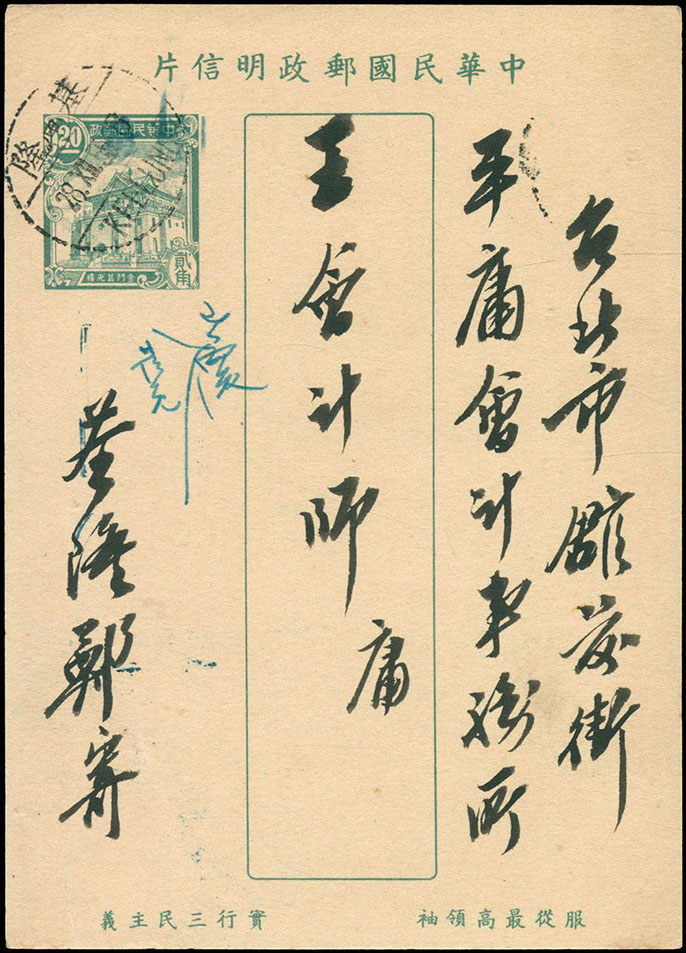 中華民國郵政明信片
中華民國郵政
20
貳角
金門莒光樓
基隆
28.XII
KEELUNG
台北市舘前街
平庸會計事務所
王會計師 庸
基隆鄭寄
服從最高領袖
實行三民主義